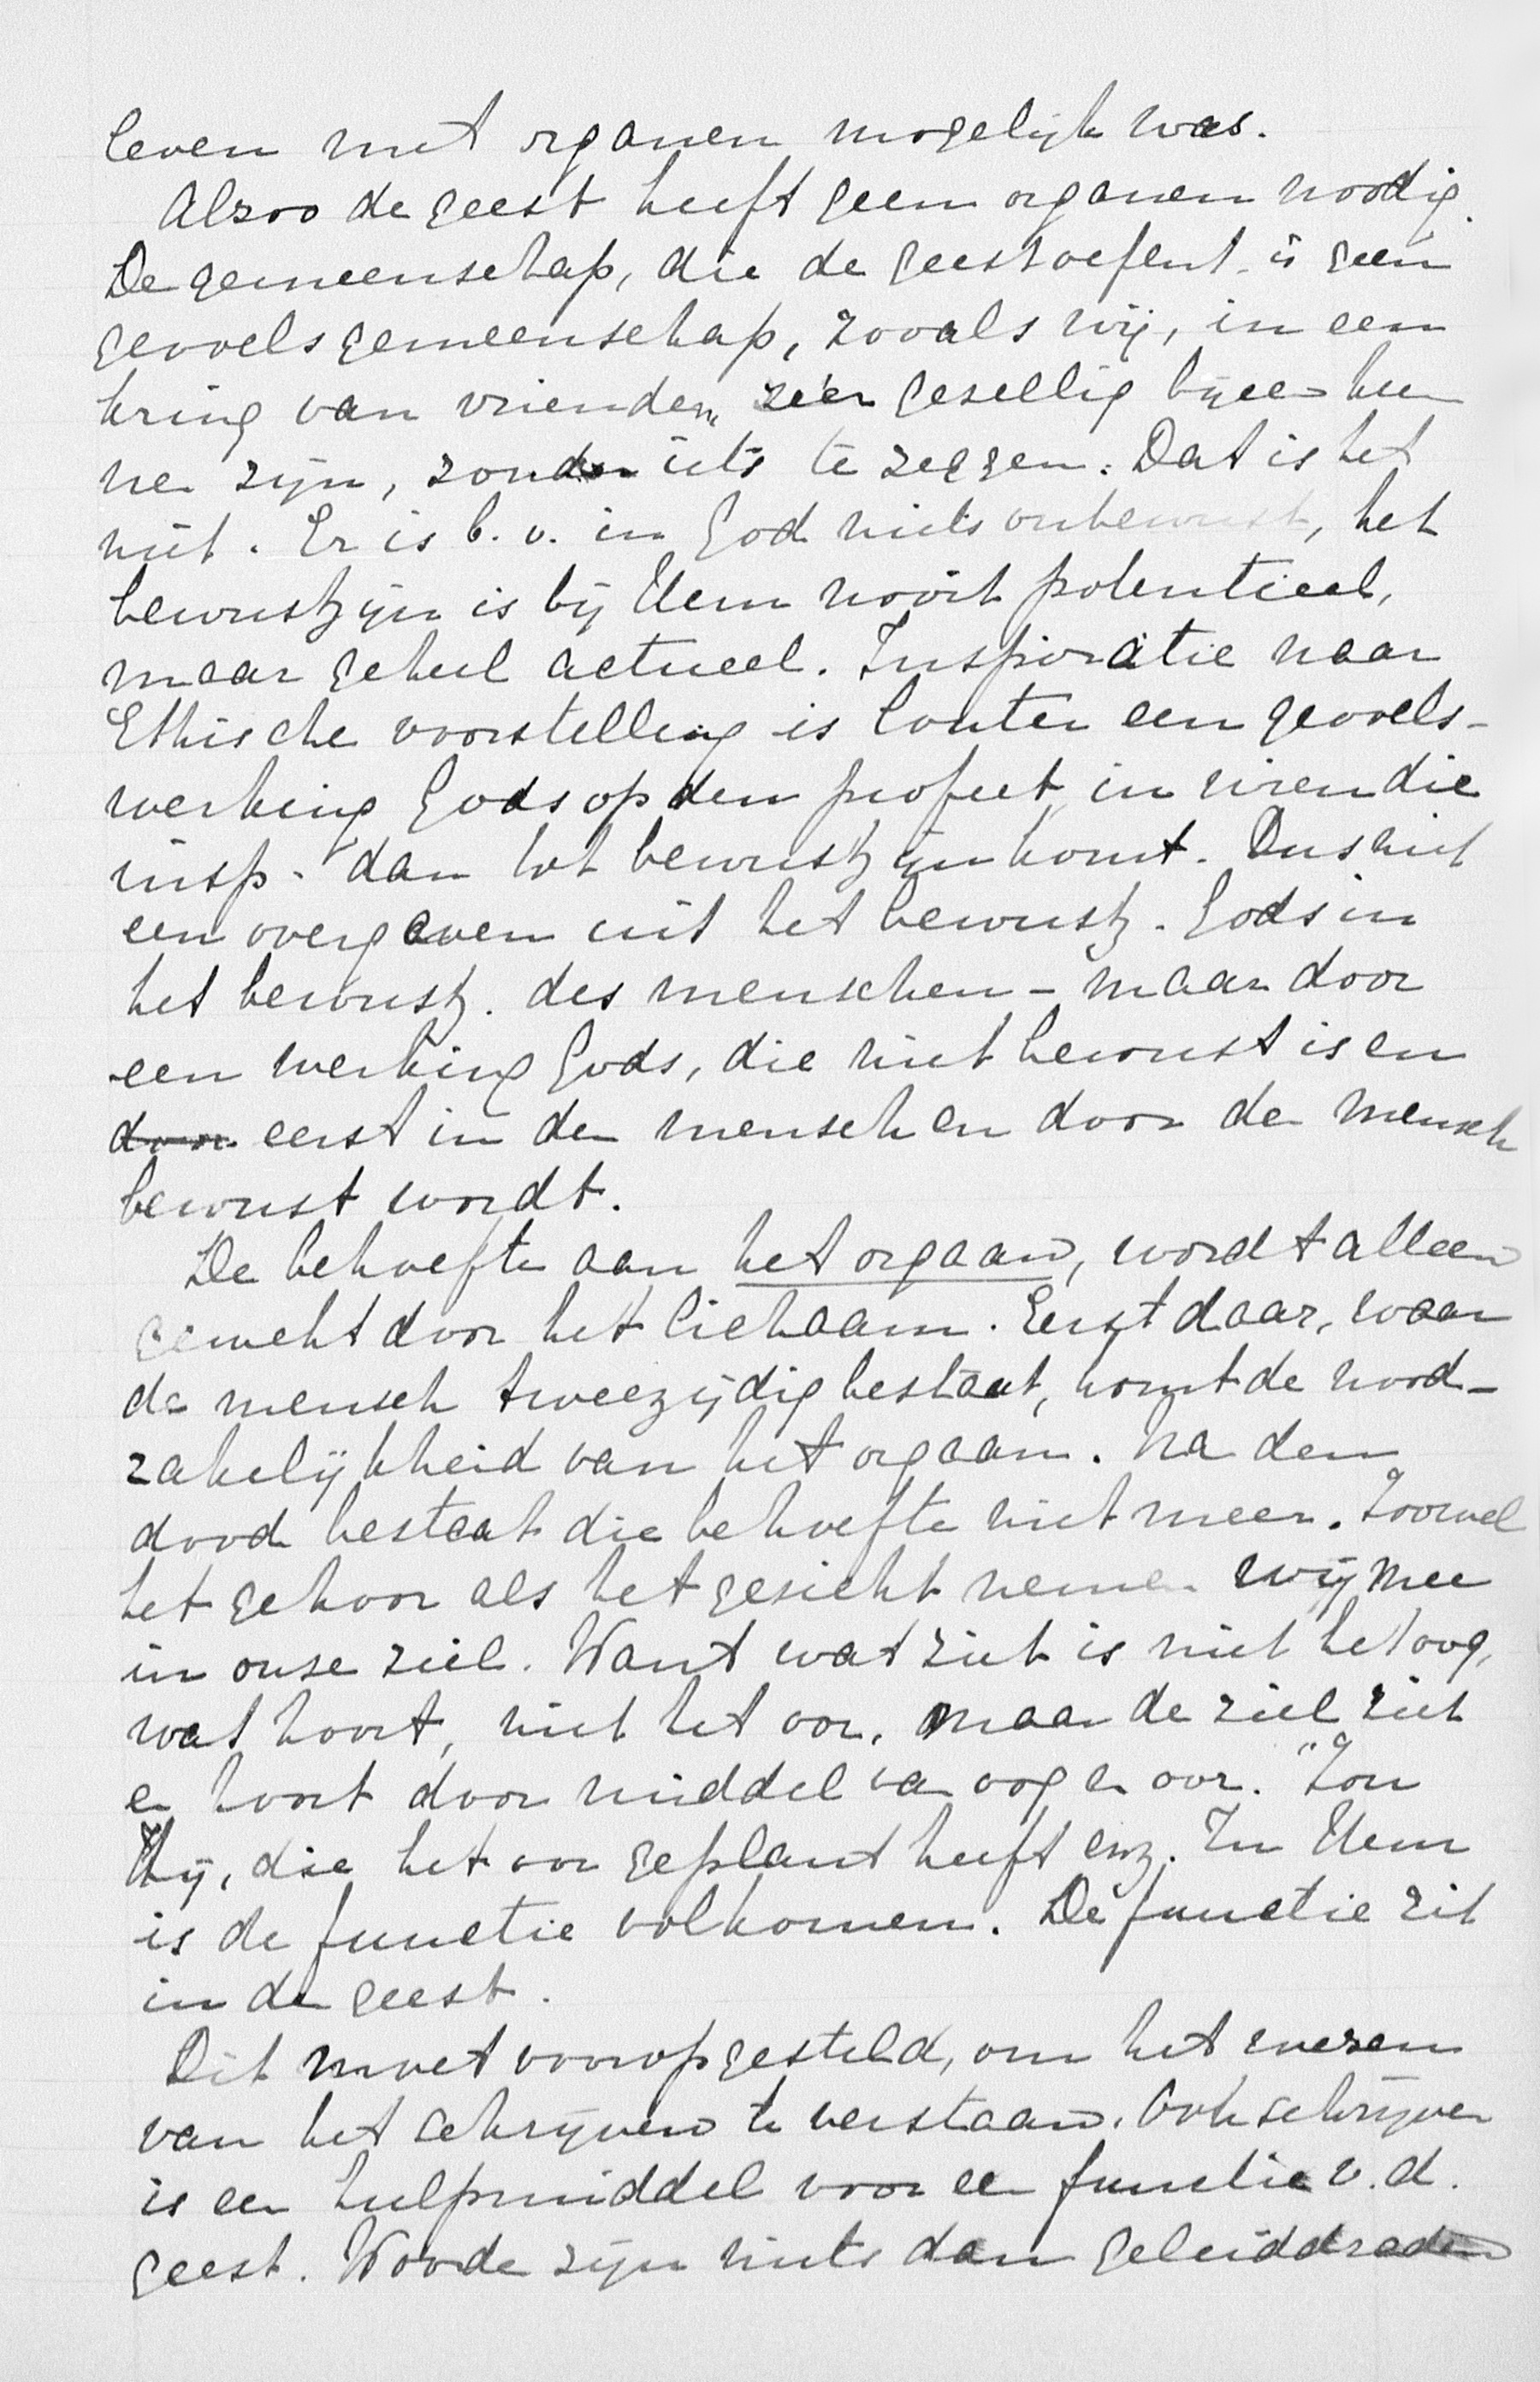 leven met organen mogelijk was.
Alzoo de geest heeft geen organen noodig.
De gemeenschap, die de geest oefent, is geen
gevoelsgemeenschap, zooals wij, in een
kring van vrienden, zéér gesellig bijeen kun
nen zijn, zonder iets te zeggen. Dat is het
niet. Er is b.v. in God niets onbewust, het
bewustzijn is bij Hem nooit potentieel,
maar geheel actueel. Inspiratie naar
Ethische voorstelling is louter een gevoels-
werking Gods op den profeet, in wien die
insp. dan tot bewustzijn komt. Dus niet
een overgeven uit het bewustz. Gods in
het bewustz. des menschen - maar door
een werking Gods, die niet bewust is en
door eerst in den mensch en door den mensch
bewust wordt.
De behoefte aan het orgaan, wordt alleen
gewekt door het lichaam. Eerst daar, waar
de mensch tweezijdig bestaat, komt de nood-
zakelijkheid van het orgaan. Na den
dood bestaat die behoefte niet meer. Zoowel
het gehoor als het gesicht nemen wij mee
in onse ziel. Want wat ziet is niet het oog,
wat hoort, niet het oor, maar de ziel ziet
en hoort door middel van oog en oor. "Zou
Hij, die het oor geplant heeft enz. In Hem
is de functie volkomen. De functie zit
in den geest.
Dit moet vooropgesteld, om het wezen
van het schrijven te verstaan. Ook schrijven
is een hulpmiddel voor een functie v.d.
geest. Woorden zijn niets dan geleiddraden